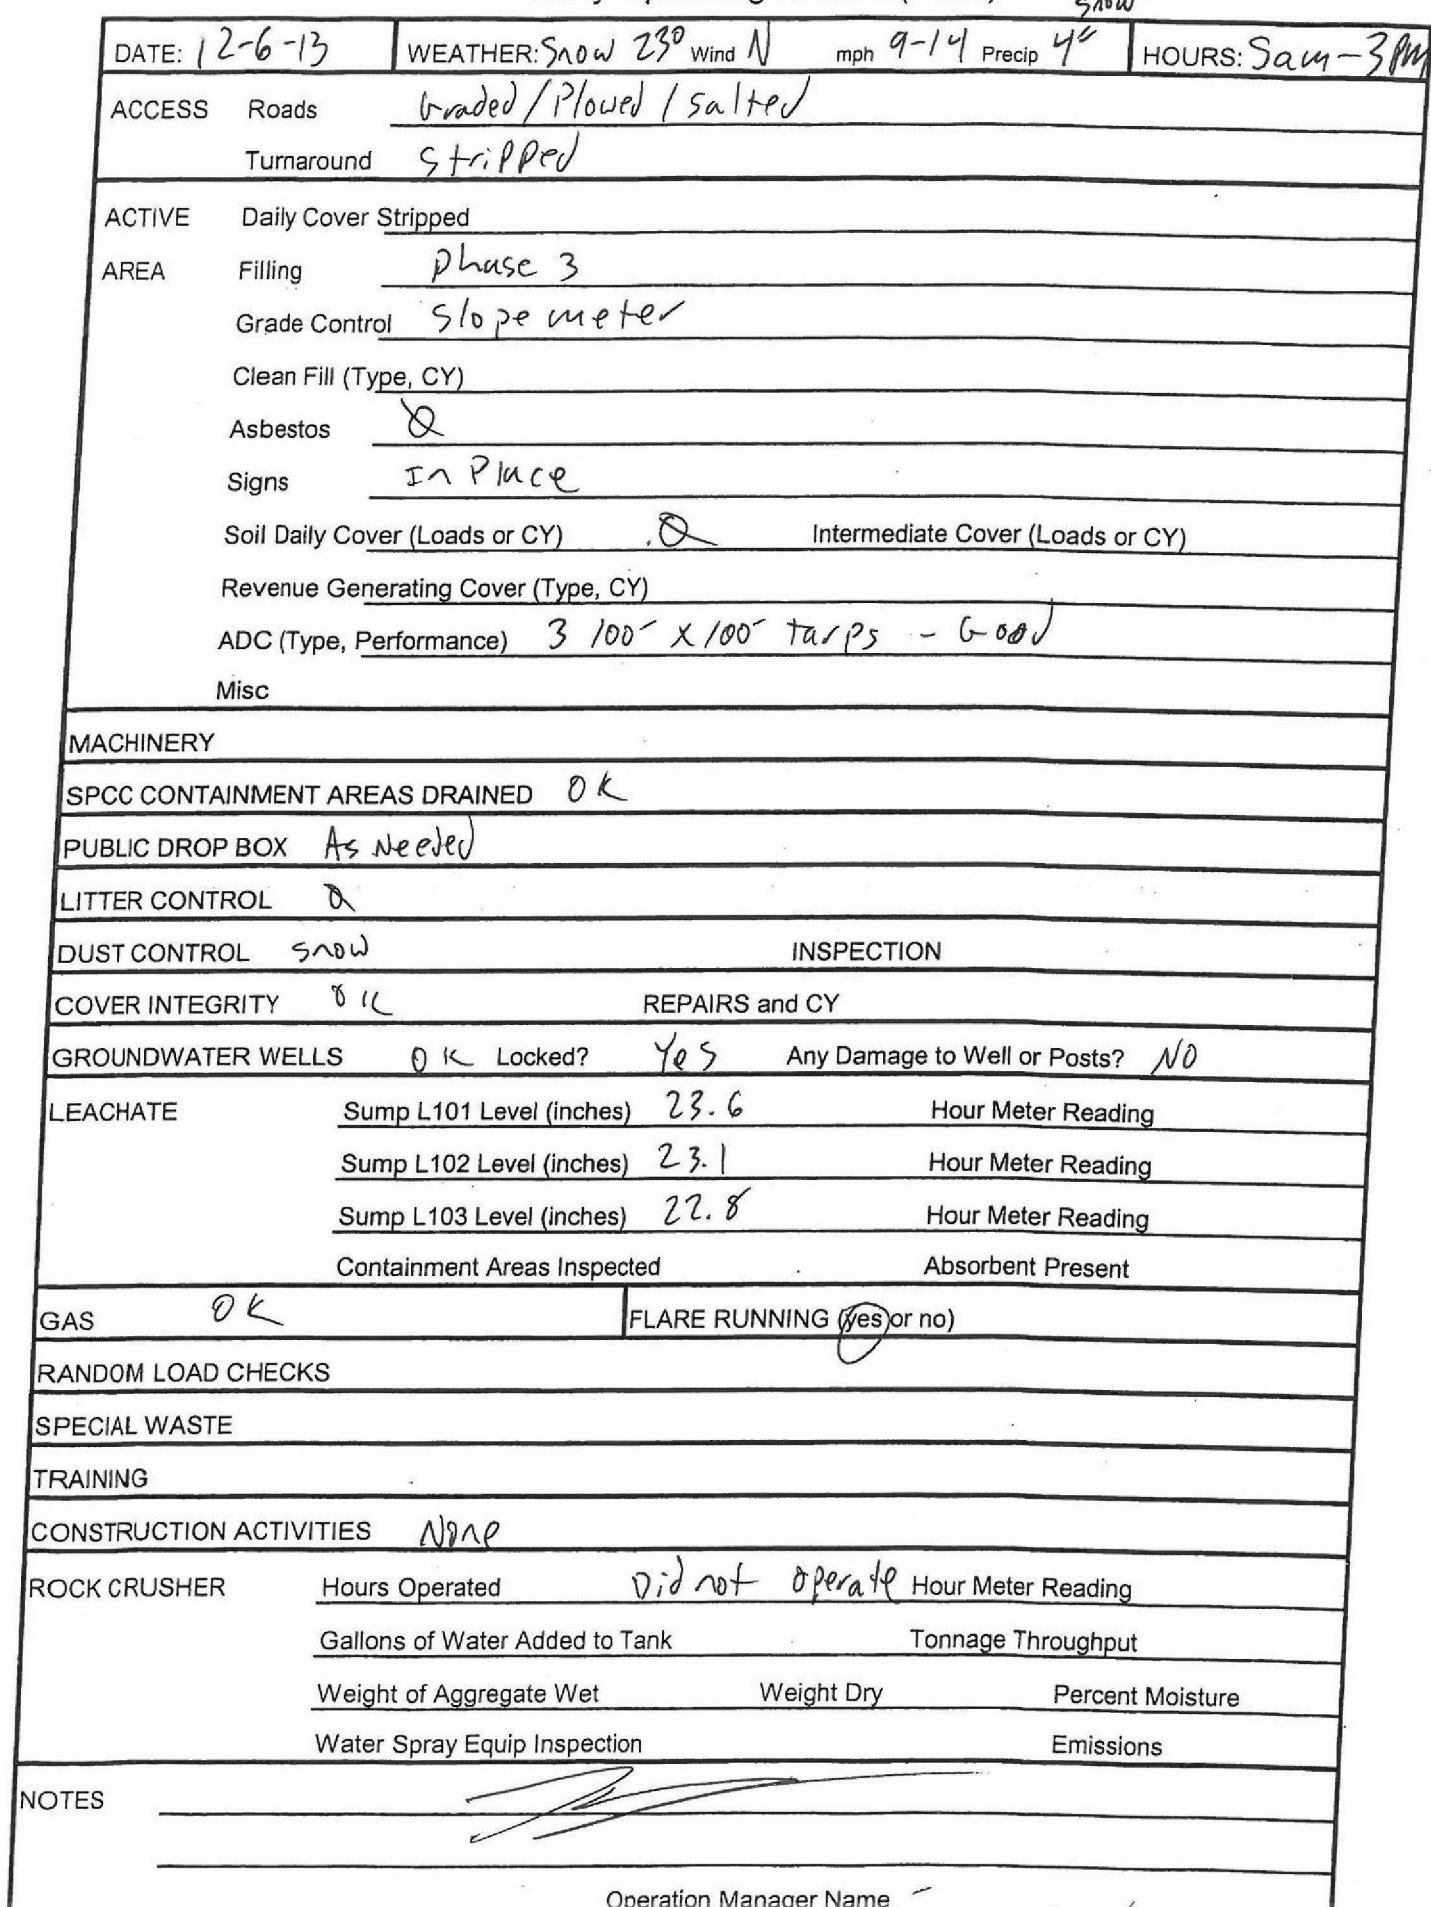 snow
DATE: 12-6-13 WEATHER: Snow 23° Wind N mph 9-14 Precip 4" HOURS: 5am-3PM
ACCESS Roads Graded/Plowed/salted
Turnaround stripped
ACTIVE Daily Cover Stripped
AREA Filling Phase 3
Grade Control Slope meter
Clean Fill (Type, CY)
Asbestos Ø
Signs In Place
Soil Daily Cover (Loads or CY) Ø Intermediate Cover (Loads or CY)
Revenue Generating Cover (Type, CY)
ADC (Type, Performance) 3 100' x 100' tarps - Good
Misc
MACHINERY
SPCC CONTAINMENT AREAS DRAINED OK
PUBLIC DROP BOX As Needed
LITTER CONTROL Ø
DUST CONTROL snow INSPECTION
COVER INTEGRITY OK REPAIRS and CY
GROUNDWATER WELLS OK Locked? Yes Any Damage to Well or Posts? NO
LEACHATE Sump L101 Level (inches) 23.6 Hour Meter Reading
Sump L102 Level (inches) 23.1 Hour Meter Reading
Sump L103 Level (inches) 22.8 Hour Meter Reading
Containment Areas Inspected Absorbent Present
GAS OK FLARE RUNNING (yes or no)
RANDOM LOAD CHECKS
SPECIAL WASTE
TRAINING
CONSTRUCTION ACTIVITIES None
ROCK CRUSHER Hours Operated Did not operate Hour Meter Reading
Gallons of Water Added to Tank Tonnage Throughput
Weight of Aggregate Wet Weight Dry Percent Moisture
Water Spray Equip Inspection Emissions
NOTES
Operation Manager Name